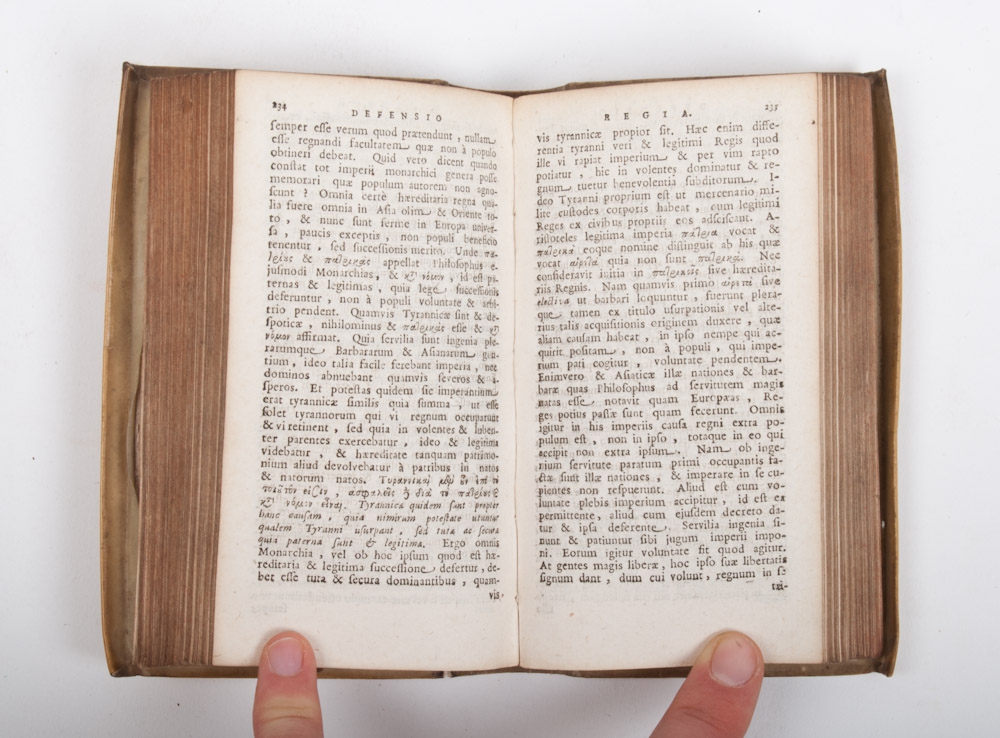 234
DEFENSIO
semper esse verum quod prætendunt, nullam
esse regnandi facultatem quæ non à populo
obtineri debeat. Quid vero dicent quando
constat tot imperii monarchici genera posse
memorari quæ populum autorem non agno-
scunt? Omnia certè hæreditaria regna qua-
lia fuere omnia in Asia olim & Oriente to-
to, & nunc sunt ferme in Europa univer-
sa, paucis exceptis, non populi beneficio
tenentur, sed successionis merito. Unde πα-
τρίες & πατρικὰς appellat Philosophus e-
jusmodi Monarchias, & κτ̀ νόμον, id est pa-
ternas & legitimas, quia lege successionis
deferuntur, non à populi voluntate & arbi-
trio pendent. Quamvis Tyrannicæ sint & de-
spoticæ, nihilominus & πατρικὰς esse & κτ̀
νόμον affirmat. Quia servilia sunt ingenia ple-
rarumque Barbararum & Asianarum gen-
tium, ideo talia facile ferebant imperia, nec
dominos abnuebant quamvis severos & a-
speros. Et potestas quidem sic imperantium
erat tyrannicæ similis quia summa, ut esse
solet tyrannorum qui vi regnum occuparunt
& vi retinent, sed quia in volentes & luben-
ter parentes exercebatur, ideo & legitima
videbatur, & hæreditate tanquam patrimo-
nium aliud devolvebatur à patribus in natos
& natorum natos. Τυραννικαὶ μὲν ὖν ἐπὶ τὸ
τοιοῦτόν εἰσιν, ἀσφαλεῖς ἢ διὰ τὸ πατρίες &
κτ̀ νόμον εἶναι. Tyrannicæ quidem sunt propter
hanc causam, quia nimirum potestate utuntur
qualem Tyranni usurpant, sed tuta ac secura
quia paterna sunt & legitima. Ergo omnis
Monarchia, vel ob hoc ipsum quod est hæ-
reditaria & legitima successione defertur, de-
bet esse tuta & secura dominantibus, quam-
vis
REGIA.
235
vis tyrannicæ propior sit. Hæc enim diffe-
rentia tyranni veri & legitimi Regis quod
ille vi rapiat imperium & per vim rapto
potiatur, hic in volentes dominatur & re-
gnum tuetur benevolentia subditorum. I-
deo Tyranni proprium est ut mercenario mi-
lite custodes corporis habeat, cum legitimi
Reges ex civibus propriis eos adsciscant. A-
ristoteles legitima imperia πάτρια vocat &
πατρικὰ eoque nomine distinguit ab his quæ
vocat αἱρετὰ quia non sunt πατρικὰ. Nec
consideravit initia in πατρικοῖς sive hæredita-
riis Regnis. Nam quamvis primo αἱρετὰ sive
electiva ut barbari loquuntur, fuerunt plera-
que tamen ex titulo usurpationis vel alte-
rius talis acquisitionis originem duxere, quæ
aliam causam habeat, in ipso nempe qui ac-
quirit positam, non à populi, qui impe-
rium pati cogitur, voluntate pendentem.
Enimvero & Asiaticæ illæ nationes & bar-
baræ quas Philosophus ad servitutem magis
natas esse notavit quam Europæas, Re-
ges potius passæ sunt quam fecerunt. Omnis
igitur in his imperiis causa regni extra po-
pulum est, non in ipso, totaque in eo qui
accipit non extra ipsum. Nam ob inge-
nium servitute paratum primi occupantis fa-
ctæ sunt illæ nationes, & imperare in se cu-
pientes non respuerunt. Aliud est cum vo-
luntate plebis imperium accipitur, id est ea
permittente, aliud cum ejusdem decreto da-
tur & ipsa deferente. Servilia ingenia si-
nunt & patiuntur sibi jugum imperii impo-
ni. Eorum igitur voluntate fit quod agitur.
At gentes magis liberæ, hoc ipso suæ libertatis
signum dant, dum cui volunt, regnum in se
tra-